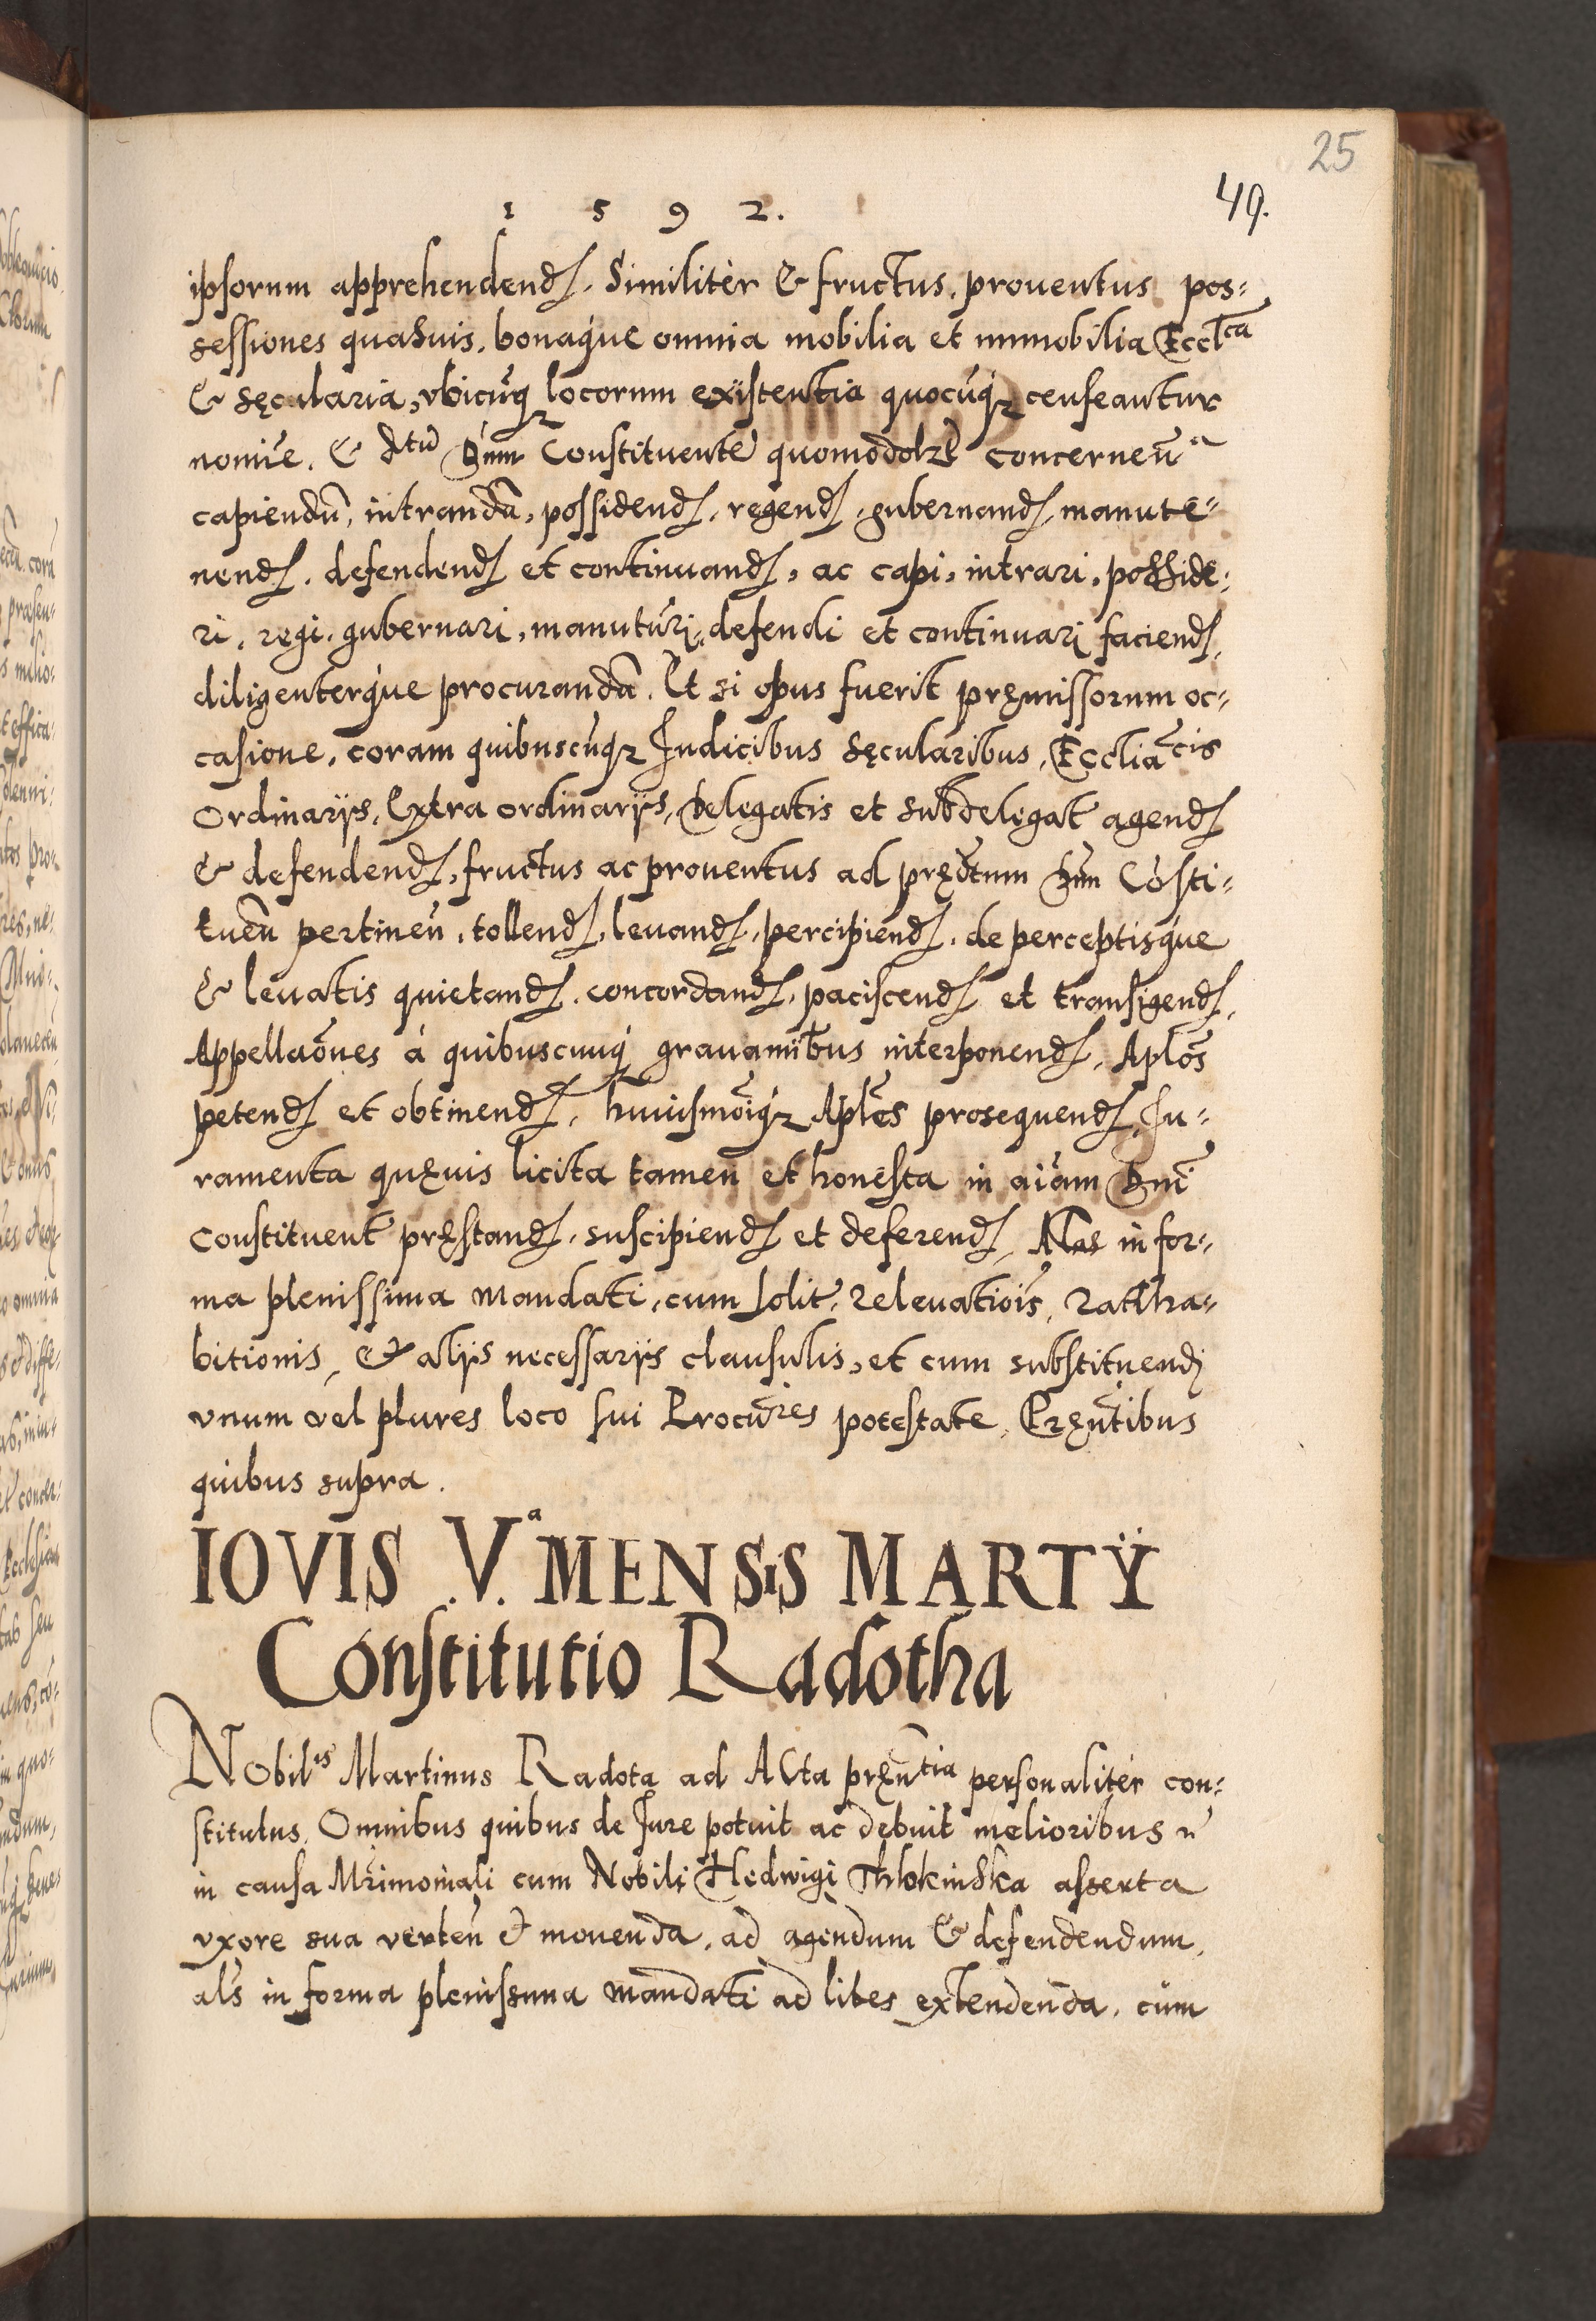 25
49.
1 5 9 2.
ipsorum apprehendend. Similiter & fructus, prouentus pos-
sessiones quasuis, bonaque omnia mobilia et immobilia Eccl̃ca
& sęcularia, vbicũq locorum existentia quocũq censeantur
nomĩe. & dtũ Dnm Constituentẽ quomodolz concernen̄a
capiendũ, intrandã, possidend, regend, gubernand, manute-
nend, defendend et continuand, ac capi, intrari, posside-
ri, regi, gubernari, manutũri, defendi et continuari faciend,
diligenterque procurandã. Et si opus fuerit pręmissorum oc-
casione, coram quibuscũq Iudicibus sęcularibus, Eccliãcis
Ordinarijs, Extra ordinarijs, Delegatis et subdelegat agend
& defendend, fructus ac prouentus ad prędctum Dnm Cõsti-
tuen̄ pertinen̄, tollend, leuand, percipiend, de perceptisque
& leuatis quietand, concordand, paciscend et transigend,
Appellaões á quibuscunq grauamĩbus interponend, Aplõs
petend et obtinend, huiusmõiq Aplõs prosequend, Iu-
ramenta quęuis licita tamen et honesta in aĩam Dni
Constituent pręstand, suscipiend et deferend, Als in for-
ma plenissima mandati, cum solit, releuatiõis, ratiha-
bitionis, & alijs necessarijs clausulis, et cum substituendi
vnum vel plures loco sui Procũres potestate, Pręñtibus
quibus supra.
IOVIS V.a MENSiS MARTŸ
Constitutio Radotha
Nobilis Martinus Radota ad ACta pręñtia personaliter con-
stitutus, Omnibus quibus de Iure potuit ac debuit melioribus
in causa Mrimoniali cum Nobili Hedwigi Thlokinska asserta
vxore sua verten̄ & mouenda, ad agendum & defendendum,
als in forma plenissima mandati ad lites extendenda, cum